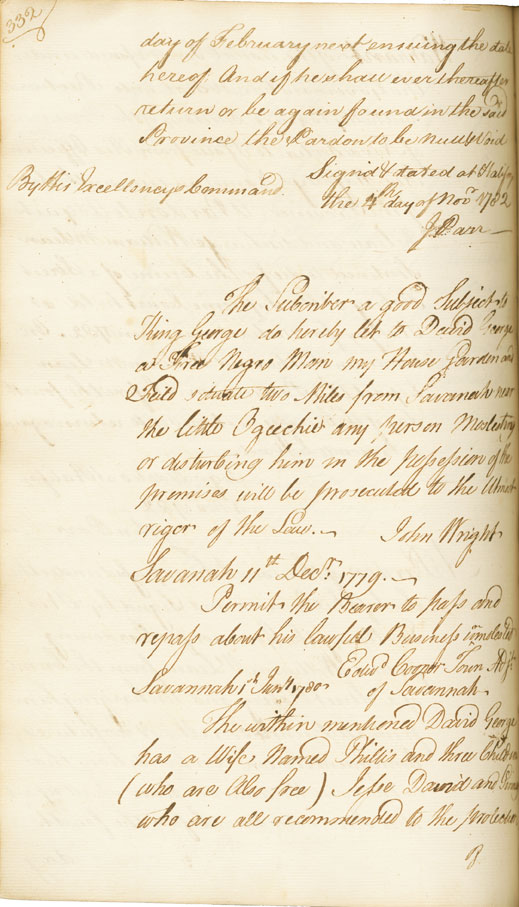 332
day of February next ensuing the date
hereof And if he shall ever thereafter
return or be again found in the said
Province the Pardon to be Null & Void
Signed & dated at Halifax
By His Excellency's Command.
the 4th day of Novr 1782
J Parr
The Subscriber a good Subject to
King George do hereby let to David George
a Free Negro Man my House Garden and
Feild scituate two Miles from Savanah near
the little Ogechie any person Molesting
or disturbing him in the possession of the
premises will be prosecuted to the Utmost
rigor of the Law. John Wright
Savanah 11th Decr. 1779.
Permit the Bearer to pass and
repass about his lawfull Business unmolested
Edwd Cooper Town Adjt
Savannah 1st Janry 1780 of Savannah.
The within mentioned David George
has a Wife Named Phillis and three Children
(who are Also free) Jesse David and
who are all recommended to the protection